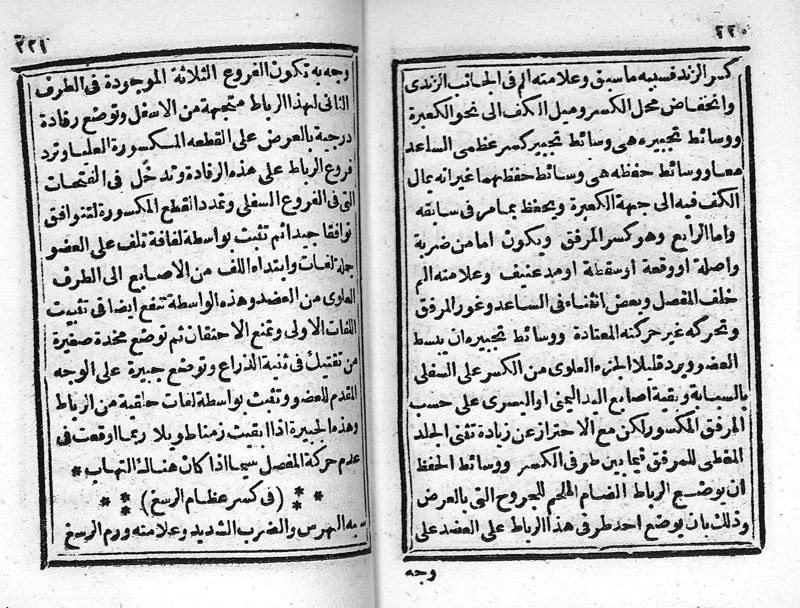 ٢٢٠
كسر الزند فسببه ما سبق وعلامته الم فى الجانب الزندى
وانخفاض محل الكسر وميل الكف الى نحو الكعبرة
ووسائط تجبيره هى وسائط تجبير كسر عظمى الساعد
معا ووسائط حفظه هى وسائط حفظهما غير انه يمال
الكف فيه الى جهة الكعبرة ويحفظ بما مر فى سابقه
واما الرابع وهو كسر المرفق ويكون اما من ضربة
واصلة او وقعة او سقطة او مد عنيف وعلامته الم
خلف المفصل وبعض انثناء فى الساعد وغور المرفق
وتحركه غير حركته المعتادة ووسائط تجبيره ان يبسط
العضو ويرد قليلا الجزء العلوى من الكسر على السفلى
بالسبابة وبقية اصابع اليد اليمنى او اليسرى على حسب
المرفق المكسور لكن مع الاحتراز عن زيادة تثنى الجلد
المغطى للمرفق فيما بين طرفى الكسر ووسائط الحفظ
ان يوضع الرباط الضام الملحم للجروح التى بالعرض
وذلك بان يوضع احد طرفى هذا الرباط على العضد على
وجه
٢٢١
وجه به تكون الفروع الثلاثة الموجودة فى الطرف
الثانى لهذا الرباط متجهة من الاسفل وتوضع رفادة
درجية بالعرض على القطعه المكسورة العليا وترد
فروع الرباط على هذه الرفادة وتدخل فى الفتحات
التى فى الفروع السفلى وتمدد القطع المكسورة لتتوافق
توافقا جيدا ثم تثبت بواسطة لفافة تلف على العضو
جملة لفات وابتداء اللف من الاصابع الى الطرف
العلوى من العضد وهذه الواسطة تنفع ايضا فى تثبيت
اللفات الاولى وتمنع الاحتقان ثم توضع مخدة صغيرة
من تفتيك فى ثنية الذراع وتوضع جبيرة على الوجه
المقدم للعضو وتثبت بواسطة لفات حلقية من ارباط
وهذه الجبيرة اذا ابقيت زمنا طويلا ربما اوقعت فى
عدم حركة المفصل سيما اذا كان هناك التهاب *
* * * (فى كسر عظام الرسغ) * * *
سببه الهرس والضرب الشديد وعلامته ورم الرسغ